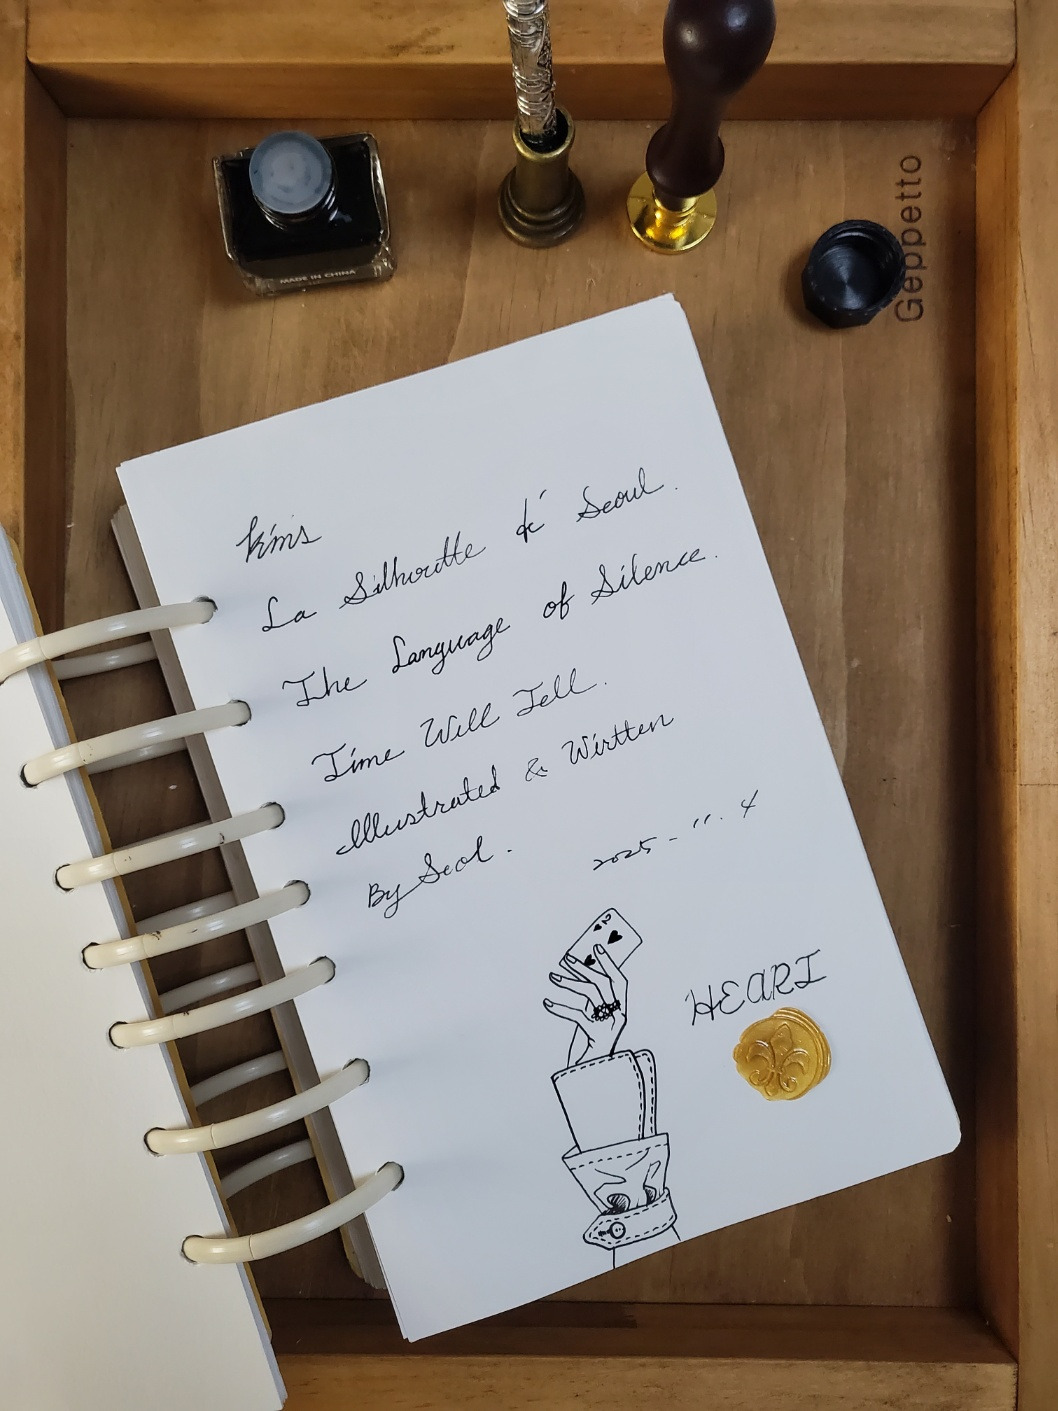 MADE IN CHINA
Geppetto
Kim's
La Silhouette de Seoul.
The Language of Silence.
Time Will Tell.
Illustrated & Wirtten
By Seol.
2025-11.4
2
HEART